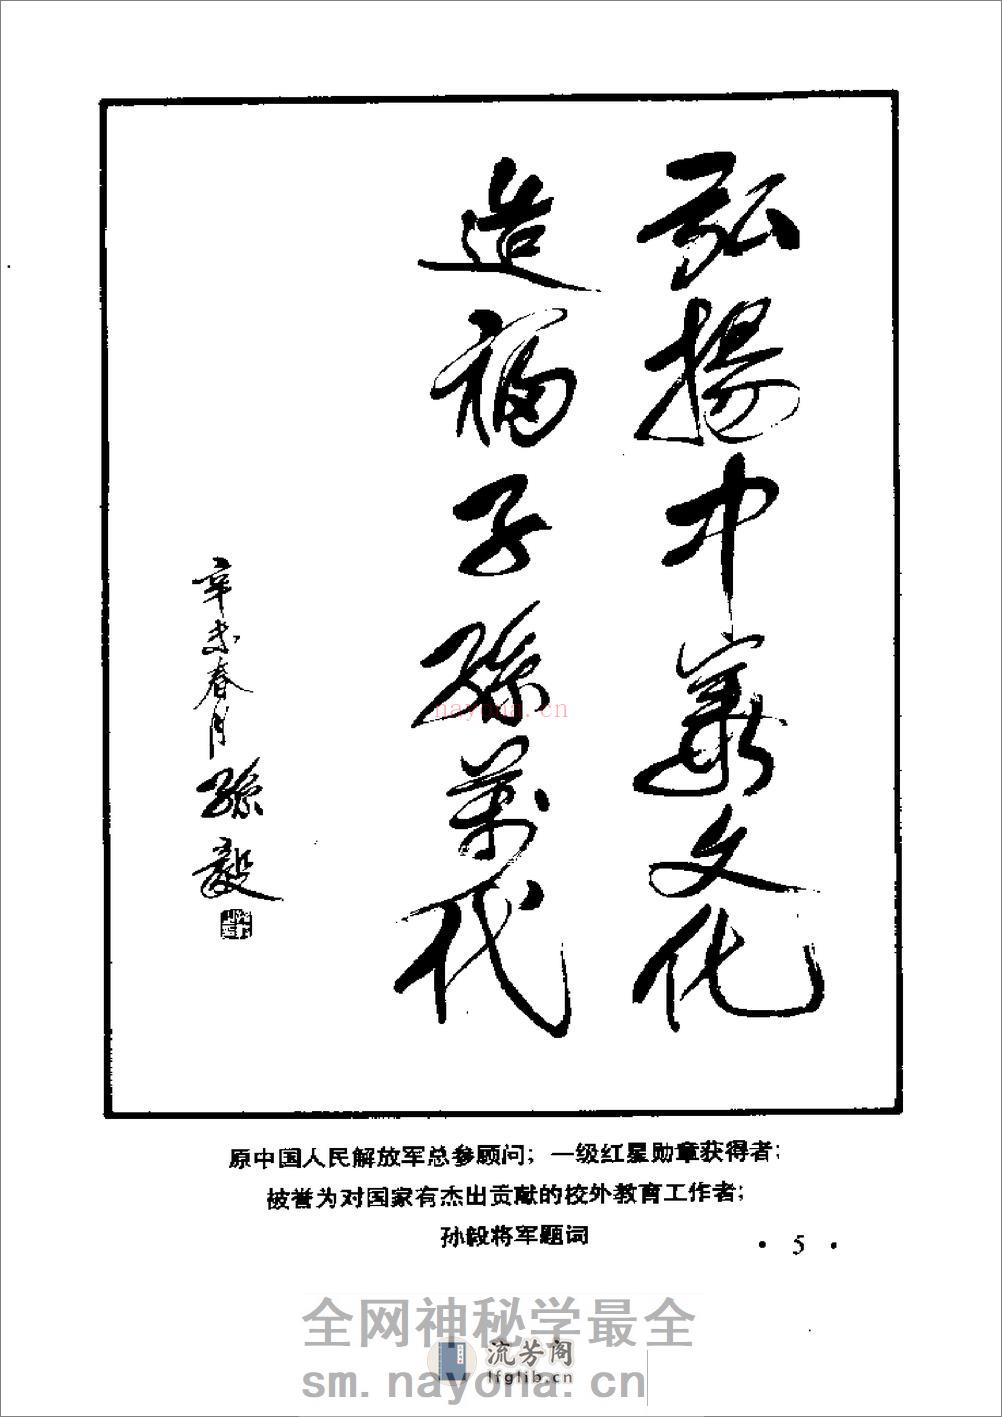 弘揚中華文化
造福子孫萬代
辛未春月 孫毅
原中国人民解放军总参顾问；一级红星勋章获得者；
被誉为对国家有杰出贡献的校外教育工作者；
孙毅将军题词
· 5 ·
nayona.cn
全网神秘学最全
流芳阁
lfglib.cn
sm.nayona.cn